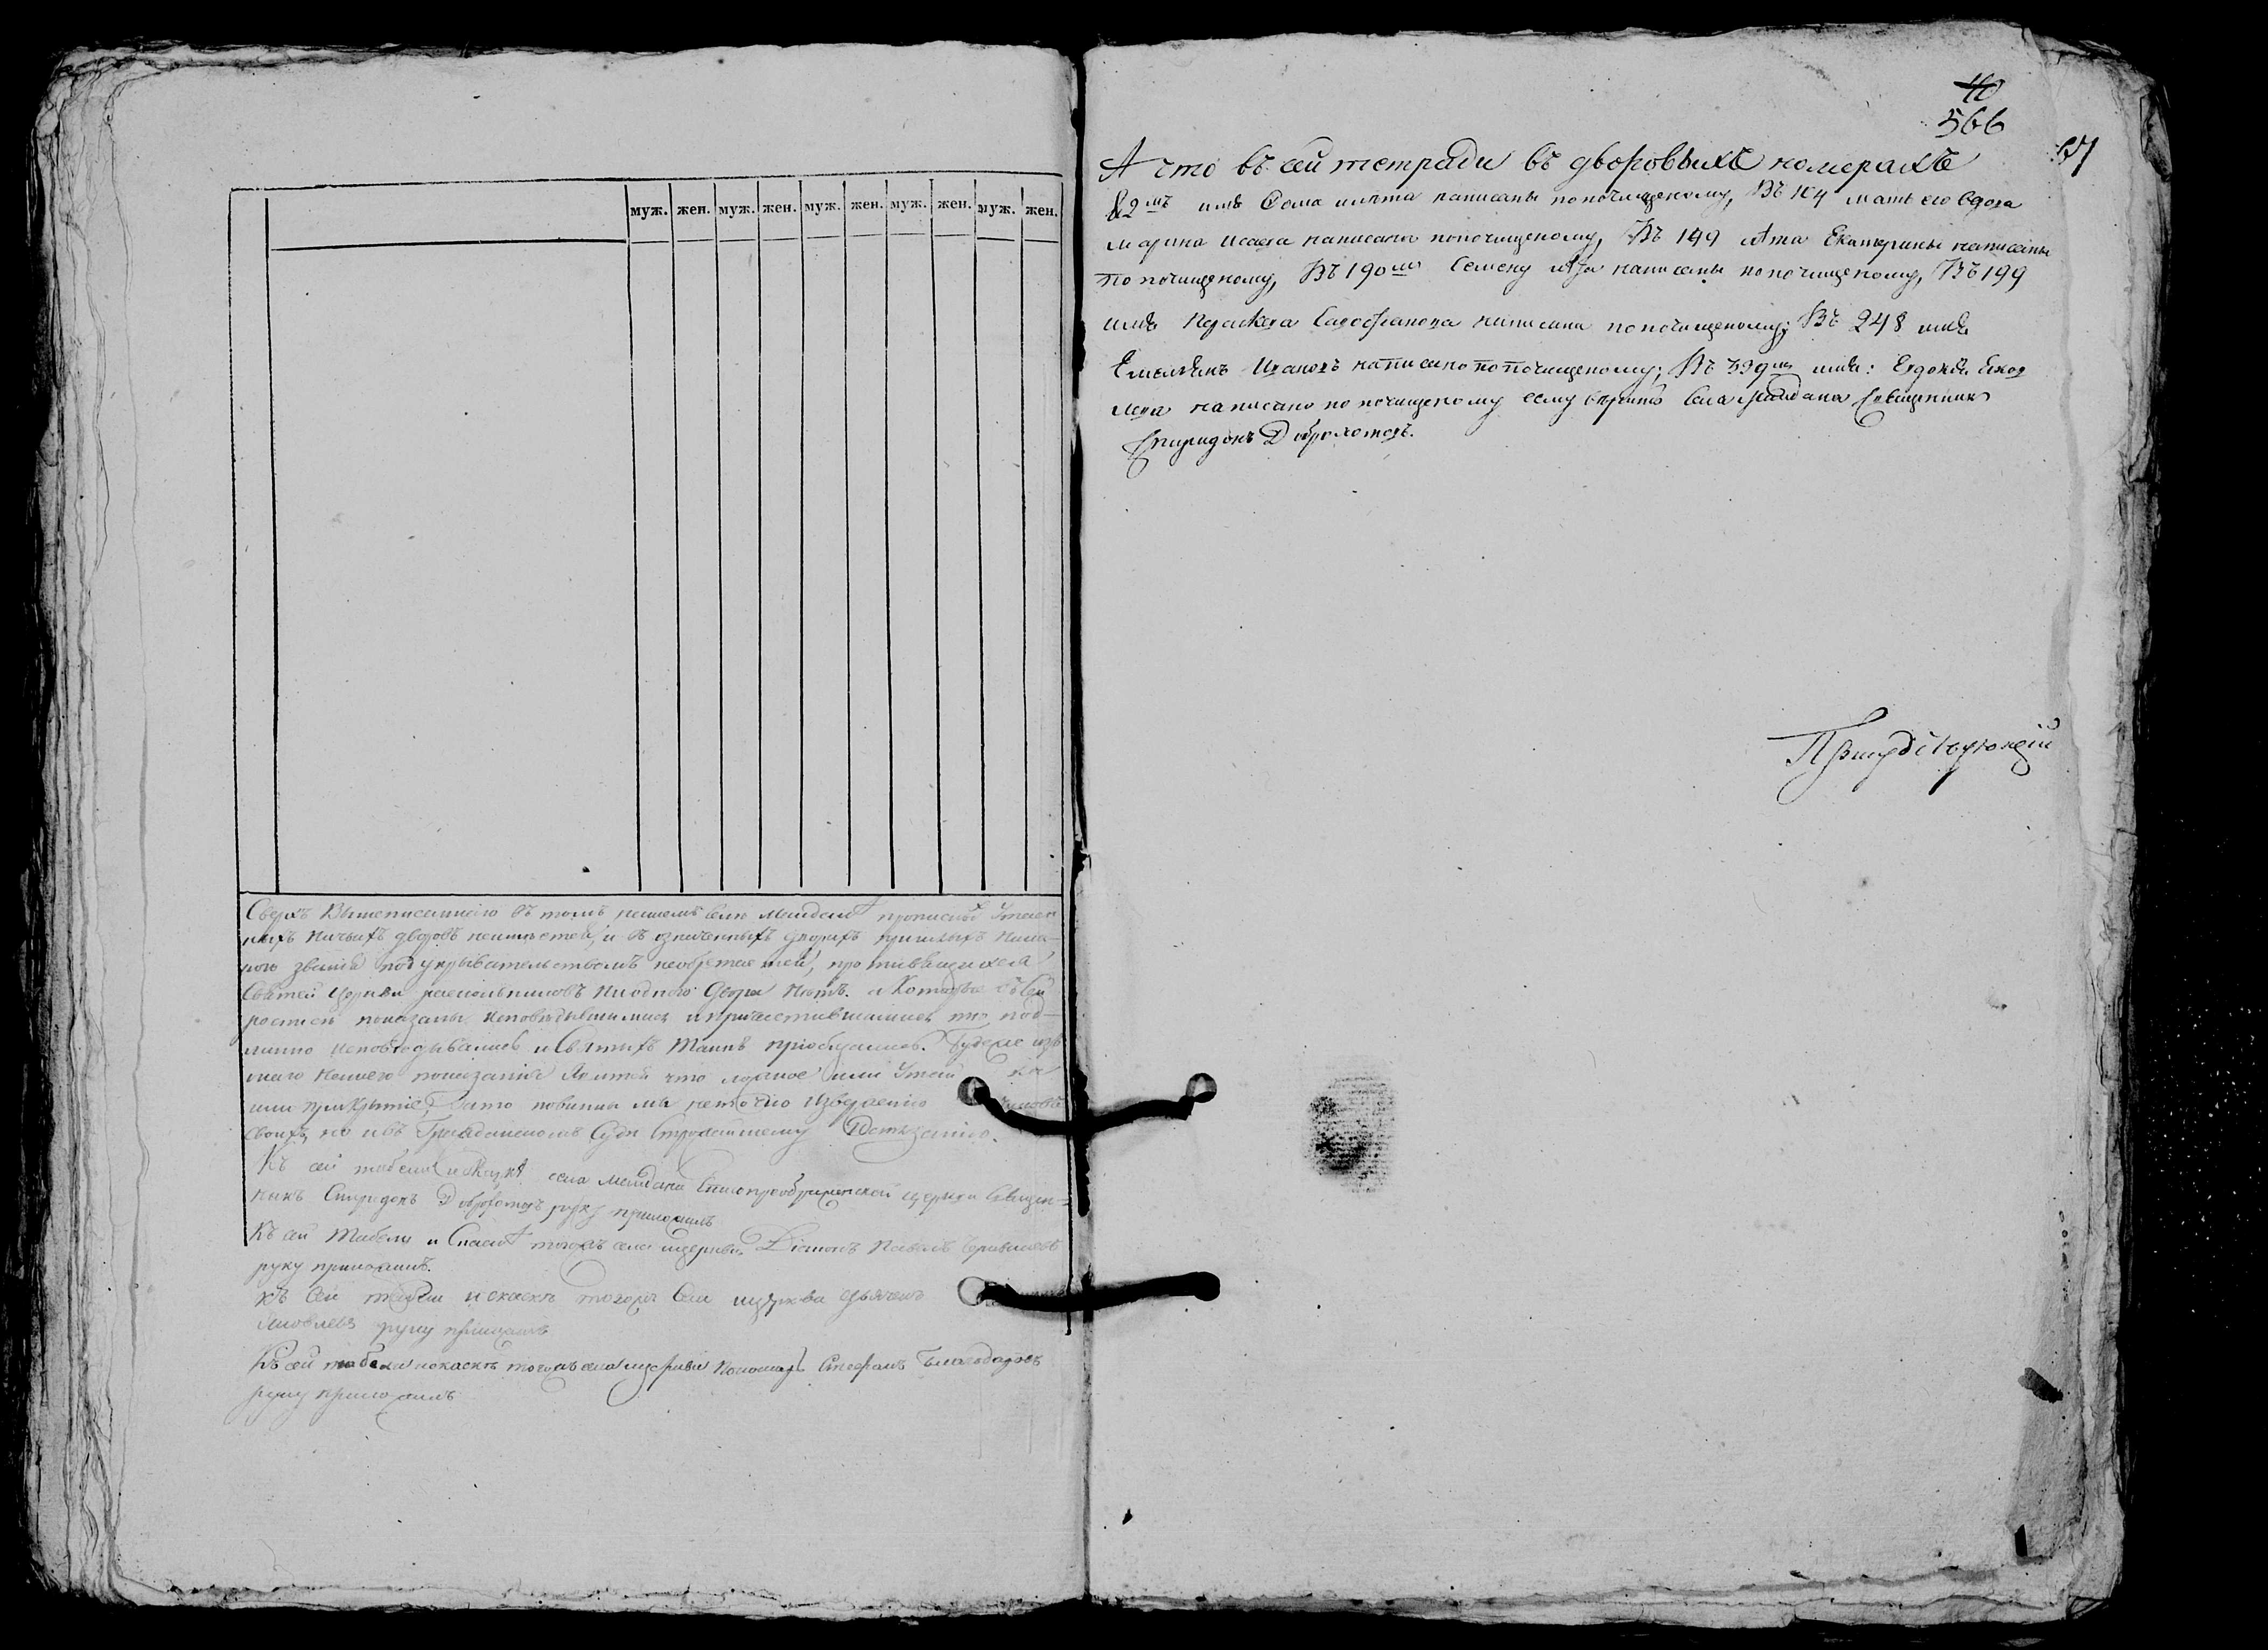 муж. жен. муж. жен. муж. жен. муж. жен. муж. жен.
Сверхъ Вышеписаннаго въ томъ нашемъ селе Маидане прописной Утаен
ныхъ ничьихъ дворовъ неимеетси, и въ означенныхъ дворахъ пришлыхъ ника
кого звания подукрывательствомъ необретаетси, противящихся
Святей Церкви раскольниковъ ниодного Двора нетъ. а Которые въ сей
росписи показаны исповедывшимись ипричастившимись те под
линно исповедывались иСвятыхъ Таинъ приобщались. Будеже изъ
сего нашего показания явится что ложное или Утаи
или прикрытие, зато повинны мы неточию Извержению чиновъ
своихъ, но ивъ Гражданскомъ Суде строжайшему Истязанию.
Къ сей табели искаске села Маидана Спасопреображенской церкви Священ=
никъ Спиридонъ Доброхотовъ руку приложилъ
Къ сей Табели и Скаске тогожъ села ицеркви Диаконъ Павелъ
руку приложилъ.
Къ сей табели искаске тогожъ села ицеркви дьячекъ
Яковлевъ руку приложилъ
Къ сей табели искаске тогожъ села ицеркви Пономарь Стефанъ Благовидовъ
руку приложилъ
40
566
67
А что въ сей тетради въ дворовыхъ номерахъ
82мъ имя Фома илета написаны попочищеному, Въ 104 мать его вдова
Марина Исаева написаны попочищеному, Въ 149 лета Екатерины написаны
по почищеному, Въ 190мъ Семену лета написаны попочищеному, Въ 199
имя Параскева написана попочищеному; Въ 248 имя
Емельянъ Ивановъ написано попочищеному; Въ 339мъ имя: Евдокия Яков
лева написано по почищеному сему верить села Маидана Священникъ
Спиридонъ Доброхотовъ.
Присудствующий